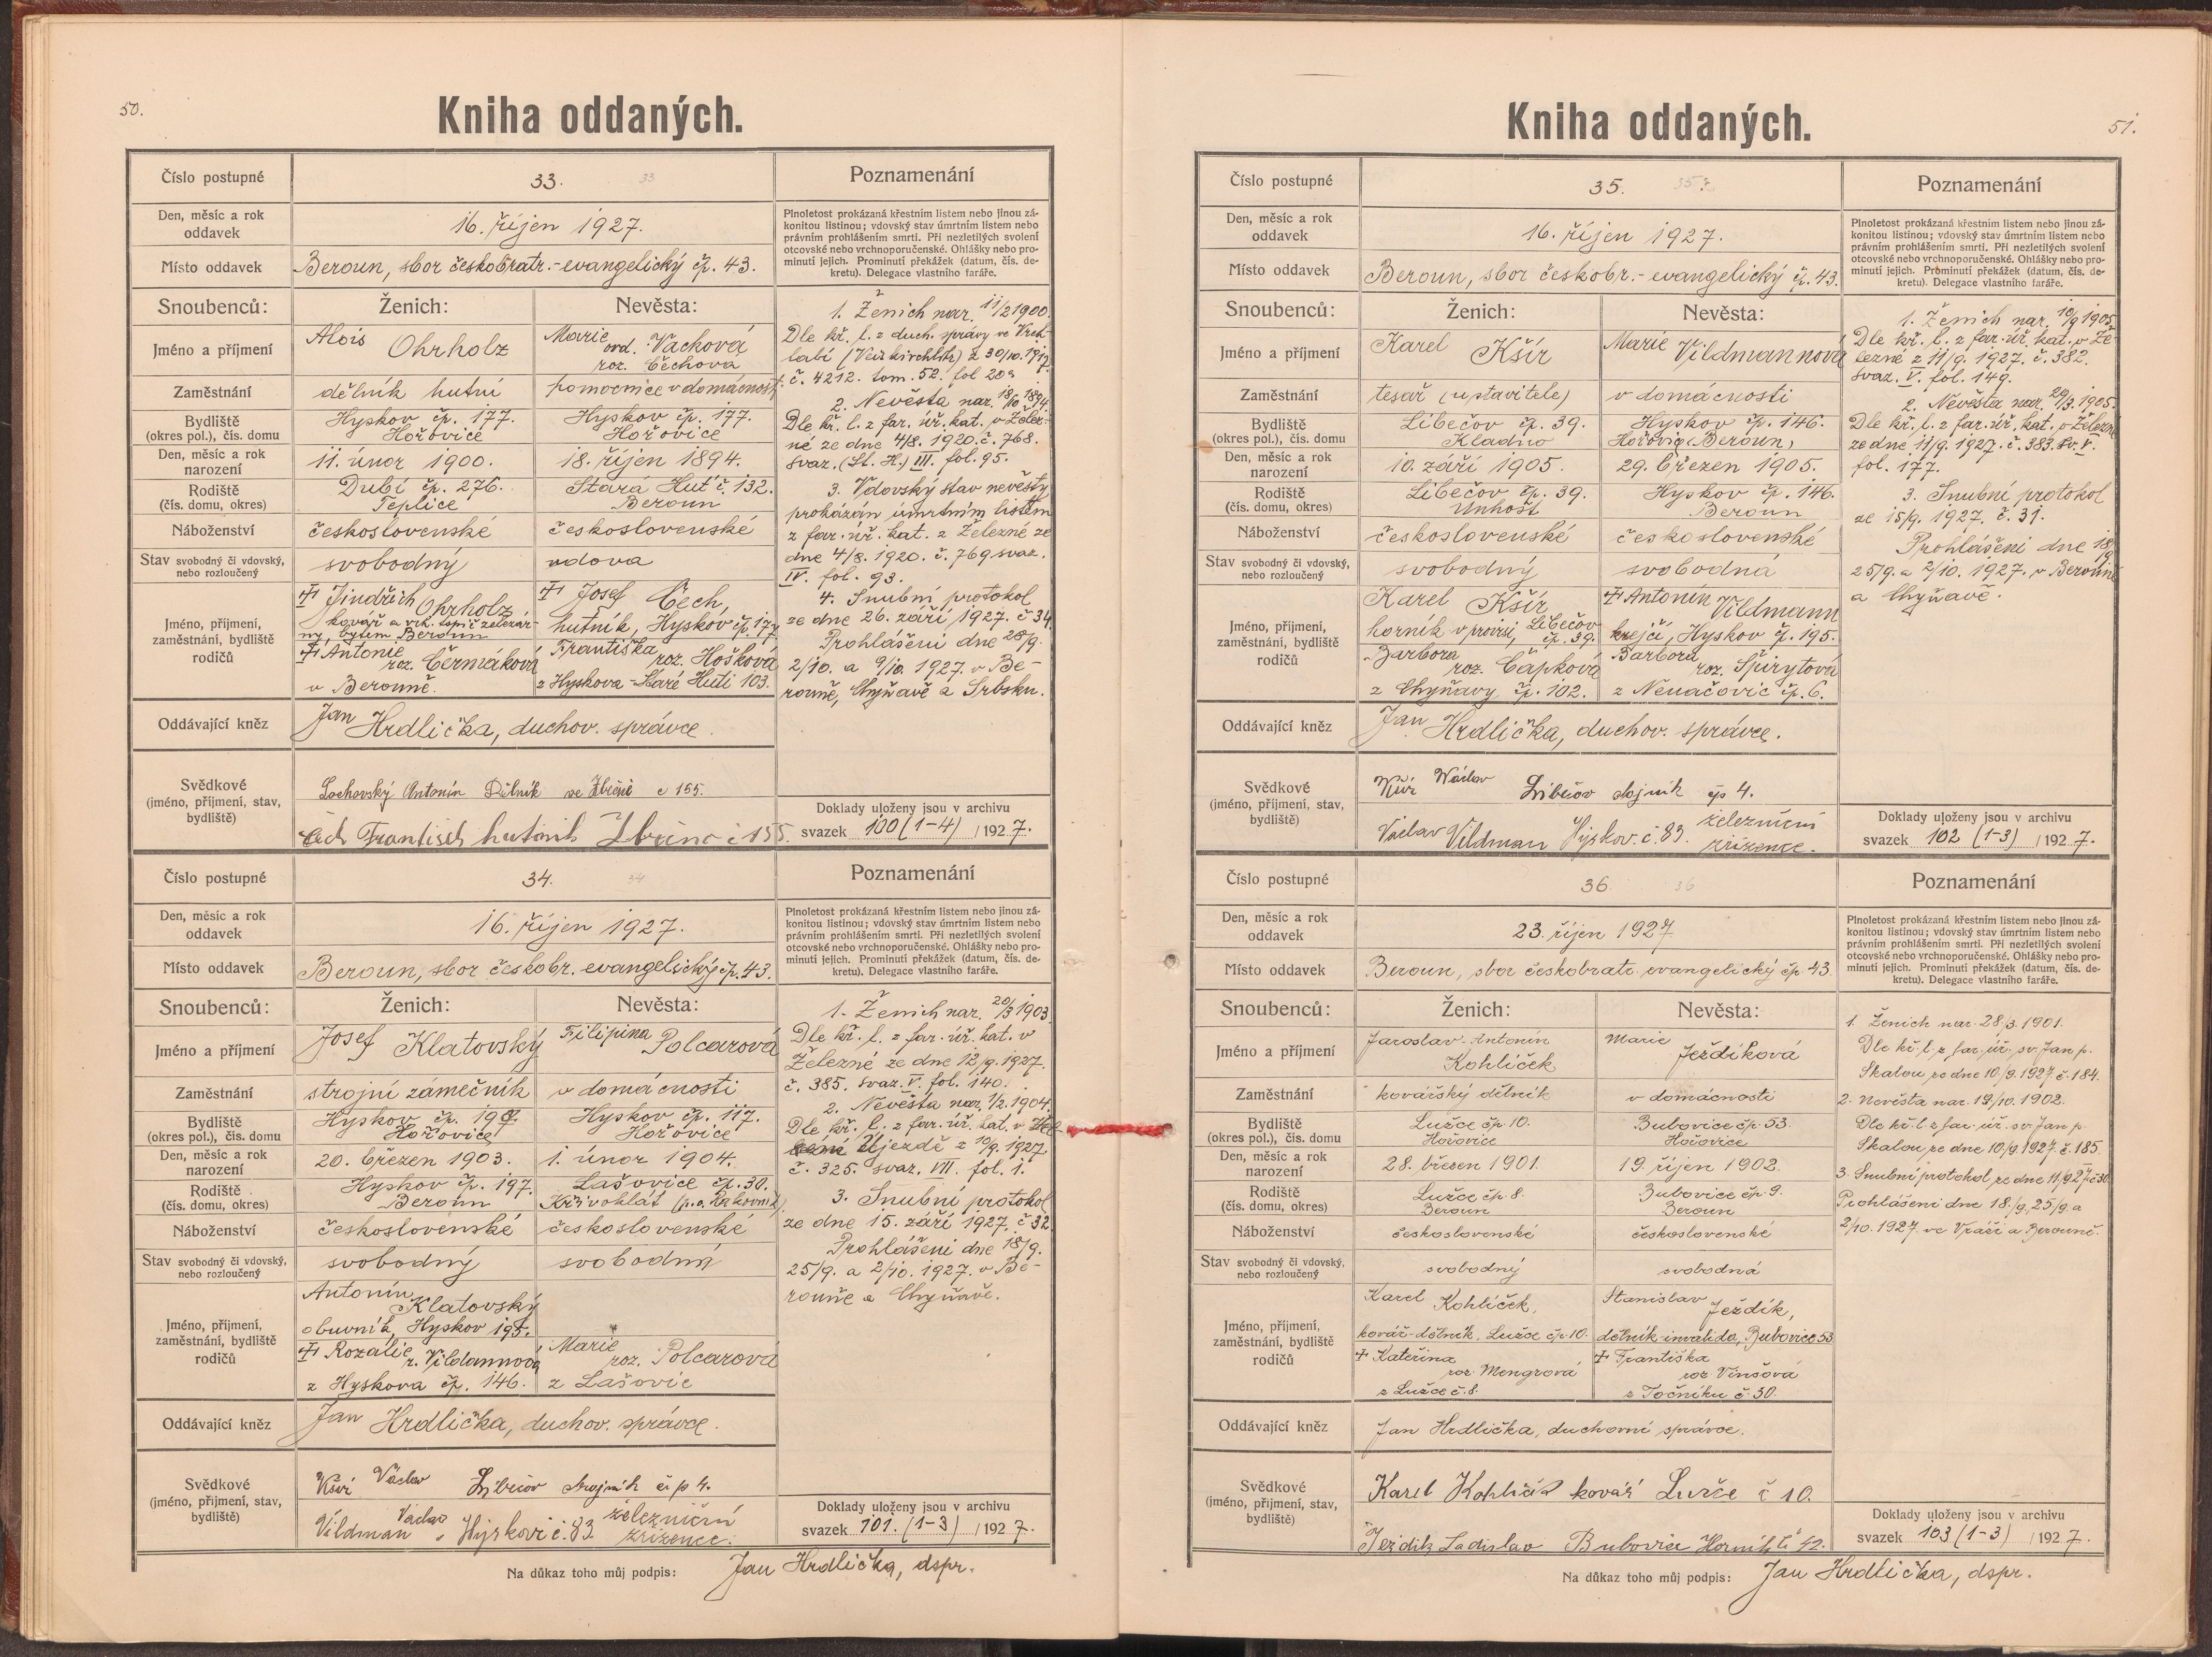 50.
Kniha oddaných.
Číslo postupné
33.
33
Poznamenání
Den, měsíc a rok
oddavek
16. říjen 1927.
Plnoletost prokázaná křestním listem nebo jinou zá-
konitou listinou; vdovský stav úmrtním listem nebo
právním prohlášením smrti. Při nezletilých svolení
otcovské nebo vrchnoporučenské. Ohlášky nebo pro-
minutí jejich. Prominutí překážek (datum, čís. de-
kretu). Delegace vlastního faráře.
Místo oddavek
Beroun, sbor českobratr.-evangelický čp. 43.
Snoubenců:
Ženich:
Nevěsta:
Jméno a příjmení
Alois Ohrholz
Marie vd. Vacková
roz. Čechova
Zaměstnání
dělník hutní
pomocnice v domácnosti
Bydliště
(okres pol.), čís. domu
Hyskov čp. 177.
Hořovice
Hyskov čp. 177.
Hořovice
Den, měsíc a rok
narození
11. únor 1900.
18. říjen 1894.
Rodiště
(čís. domu, okres)
Dubí čp. 276.
Teplice
Stará Huť č. 132.
Beroun
Náboženství
československé
československé
Stav svobodný či vdovský,
nebo rozloučený
svobodný
vdova
Jméno, příjmení,
zaměstnání, bydliště
rodičů
Jindřich Ohrholz,
kovář a vrt. topič železár-
ny, bytem Beroun
Antonie
roz. Čermáková
v Berouně.
Josef Čech,
hutník, Hyskov čp. 177
Františka
roz. Hošková
z Hyskova-Staré Huti 103.
1. Ženich nar. 11/2 1900.
Dle kř. l. z duch. správy ve Vrch-
labí z 30/10. 1917.
č. 4212. tom. 52. fol 209
2. Nevěsta nar. 18/10 1894.
Dle kř. l. z far. úř. kat. v Želez-
né ze dne 4/8. 1920. č. 768.
svaz. (St. H.) III. fol. 95.
3. Vdovský stav nevěsty
prokázán úmrtním listem
z far. úř. kat. z Železné ze
dne 4/8. 1920. č. 769 svaz.
IV. fol. 93.
4. Snubní protokol
ze dne 26. září, 1927. č 34.
Prohlášení dne 28/9.
2/10. a 9/10. 1927. v Be-
rouně, Chyňavě a Srbsku.
Oddávající kněz
Jan Hrdlička, duchov. správce.
Svědkové
(jméno, příjmení, stav,
bydliště)
Lochovský Antonín Dělník ve č 155.
Čech František hutník č 155.
Doklady uloženy jsou v archivu
svazek 100 (1-4) /1927.
Číslo postupné
34.
34
Poznamenání
Den, měsíc a rok
oddavek
16. říjen 1927.
Plnoletost prokázaná křestním listem nebo jinou zá-
konitou listinou; vdovský stav úmrtním listem nebo
právním prohlášením smrti. Při nezletilých svolení
otcovské nebo vrchnoporučenské. Ohlášky nebo pro-
minutí jejich. Prominutí překážek (datum, čís. de-
kretu). Delegace vlastního faráře.
Místo oddavek
Beroun, sbor českobr. evangelický čp. 43.
Snoubenců:
Ženich:
Nevěsta:
Jméno a příjmení
Josef Klatovský
Filipina Polcarová
Zaměstnání
strojní zámečník
v domácnosti
Bydliště
(okres pol.), čís. domu
Hyskov čp. 197.
Hořovice
Hyskov čp. 117.
Hořovice
Den, měsíc a rok
narození
20. březen 1903.
1. únor 1904.
Rodiště
(čís. domu, okres)
Hyskov čp. 197.
Beroun
Lašovice čp. 30.
Křivoklát (p.o. Rakovník)
Náboženství
československé
československé
Stav svobodný či vdovský,
nebo rozloučený
svobodný
svobodná
Jméno, příjmení,
zaměstnání, bydliště
rodičů
Antonín
Klatovský
obuvník, Hyskov 195.
Rozalie
r. Vildannová
z Hyskova čp. 146.
Marie
roz. Polcarová
z Lašovic
1. Ženich nar. 20/3 1903.
Dle kř. l. z far. úř. kat. v
Železné ze dne 12/9. 1927.
č. 385. svaz. V. fol. 140.
2. Nevěsta nar. 1/2. 1904.
Dle kř. l. z far. úř. kat. v
Újezdě z 10/9. 1927.
č. 325. svaz. VII. fol. 1.
3. Snubní protokol
ze dne 15. září 1927. č 32.
Prohlášení dne 18/9.
25/9. a 2/10. 1927. v Be-
rouně a Chyňavě.
Oddávající kněz
Jan Hrdlička, duchov. správce.
Svědkové
(jméno, příjmení, stav,
bydliště)
Václav Libečov strojník čp 4.
Vildman Václav Hyskov č. 83. železniční
zřízenec.
Doklady uloženy jsou v archivu
svazek 101. (1-3) /1927.
Na důkaz toho můj podpis: Jan Hrdlička, dspr.
51.
Kniha oddaných.
Číslo postupné
35.
35
Poznamenání
Den, měsíc a rok
oddavek
16. říjen 1927.
Plnoletost prokázaná křestním listem nebo jinou zá-
konitou listinou; vdovský stav úmrtním listem nebo
právním prohlášením smrti. Při nezletilých svolení
otcovské nebo vrchnoporučenské. Ohlášky nebo pro-
minutí jejich. Prominutí překážek (datum, čís. de-
kretu). Delegace vlastního faráře.
Místo oddavek
Beroun, sbor českobr.-evangelický čp. 43.
Snoubenců:
Ženich:
Nevěsta:
Jméno a příjmení
Karel Kšír
Marie Vildmannová
Zaměstnání
tesař (u stavitele)
v domácnosti
Bydliště
(okres pol.), čís. domu
Libečov čp. 39.
Kladno
Hyskov čp. 146.
(Beroun)
Den, měsíc a rok
narození
10. září 1905.
29. březen 1905.
Rodiště
(čís. domu, okres)
Libečov čp. 39.
Unhošť
Hyskov čp. 146.
Beroun
Náboženství
československé
československé
Stav svobodný či vdovský,
nebo rozloučený
svobodný
svobodná
Jméno, příjmení,
zaměstnání, bydliště
rodičů
Karel Kšír
horník v provisi, Libečov
čp. 39.
Barbora
roz. Čapková
z Chyňavy čp. 102.
Antonín Vildmann
krejčí, Hyskov čp. 195.
Barbora
roz. Špirytová
z Nenačovic čp. 6.
1. Ženich nar. 10/9 1905.
Dle kř. l. z far. úř. kat. v Že-
lezné z 11/9. 1927. č. 382.
svaz. V. fol. 149.
2. Nevěsta nar. 29/3. 1905.
Dle kř. l. z far. úř. kat. v Železné
ze dne 11/9. 1927. č. 383. sv. V.
fol. 177.
3. Snubní protokol
ze 15/9. 1927. č. 31.
Prohlášení dne 18/9
25/9. a 2/10. 1927. v Berouně
a Chyňavě.
Oddávající kněz
Jan Hrdlička, duchov. správce.
Svědkové
(jméno, příjmení, stav,
bydliště)
Kšír Václav Libečov strojník čp 4.
Václav Vildman Hyskov. č. 83. železniční
zřízenec.
Doklady uloženy jsou v archivu
svazek 102 (1-3) /1927.
Číslo postupné
36.
36
Poznamenání
Den, měsíc a rok
oddavek
23. říjen 1927
Plnoletost prokázaná křestním listem nebo jinou zá-
konitou listinou; vdovský stav úmrtním listem nebo
právním prohlášením smrti. Při nezletilých svolení
otcovské nebo vrchnoporučenské. Ohlášky nebo pro-
minutí jejich. Prominutí překážek (datum, čís. de-
kretu). Delegace vlastního faráře.
Místo oddavek
Beroun, sbor českobratr. evangelický čp 43.
Snoubenců:
Ženich:
Nevěsta:
Jméno a příjmení
Jaroslav-Antonín
Kohlíček
Marie
Ježdíková
Zaměstnání
kovářský dělník
v domácnosti
Bydliště
(okres pol.), čís. domu
Lužce čp. 10.
Hořovice
Bubovice čp. 53.
Hořovice
Den, měsíc a rok
narození
28. březen 1901.
19. říjen 1902.
Rodiště
(čís. domu, okres)
Lužce čp. 8.
Beroun
Bubovice čp 9.
Beroun
Náboženství
československé
československé
Stav svobodný či vdovský,
nebo rozloučený
svobodný
svobodná
Jméno, příjmení,
zaměstnání, bydliště
rodičů
Karel Kohlíček,
kovář-dělník, Lužce čp 10.
Kateřina
roz. Mengrová
z Lužce č. 8.
Stanislav Ježdík,
dělník-invalida, Bubovice 53
Františka
roz Vinšová
z Točníku č. 30.
1. Ženich nar. 28/3. 1901.
Dle kř. l. z far. úř. sv. Jan p.
Skalou ze dne 10/9. 1927 č. 184.
2. Nevěsta nar. 19/10. 1902.
Dle kř. l. z far. úř. sv. Jan p.
Skalou ze dne 10/9. 1927. č. 185.
3. Snubní protokol ze dne 11/9 27 č 30
Prohlášení dne 18./9, 25/9. a
2/10. 1927. ve Vráži a Berouně.
Oddávající kněz
Jan Hrdlička, duchovní správce.
Svědkové
(jméno, příjmení, stav,
bydliště)
Karel Kohlíček kovář Lužce č 10.
Ježdík Ladislav Bubovice Horník č 42.
Doklady uloženy jsou v archivu
svazek 103 (1-3) /1927.
Na důkaz toho můj podpis: Jan Hrdlička, dspr.